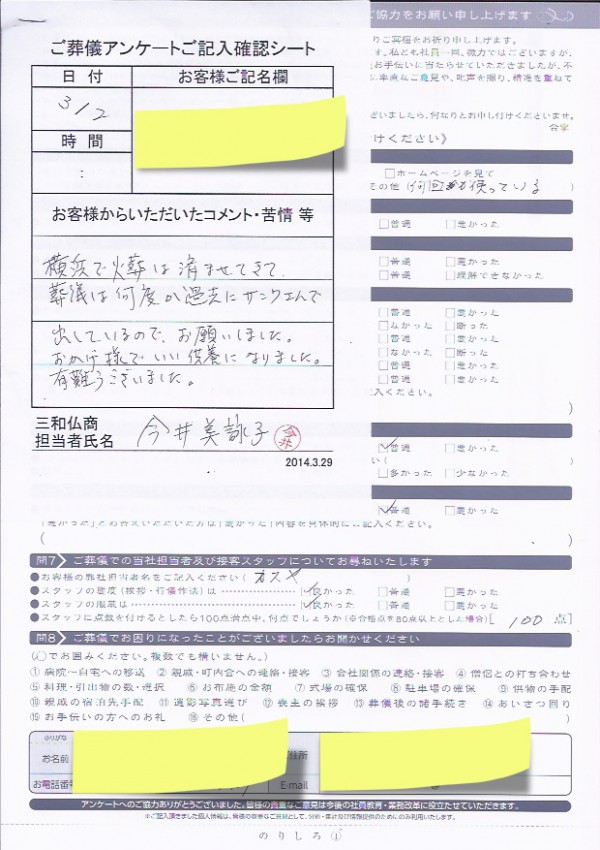 ご葬儀アンケートご記入確認シート
日付
お客様ご記名欄
3/2
時間
:
お客様からいただいたコメント・苦情 等
横浜で火葬は済ませてきて、
葬儀は何度か過去にサンクエんで
出しているので、お願いしました。
おかげ様でいい供養になりました。
有難うございました。
三和仏商
担当者氏名 今井美詠子 今井
2014.3.29
ご協力をお願い申し上げます
りご冥福をお祈り申し上げます。
す。私ども社員一同、微力ではございますが、
お手伝いに当たらせていただきましたが、不
に率直なご意見や、叱声を賜り、精進を重ねて
ざいましたら、何なりとお申し付けくださいませ。
合掌
けください》
□ホームページを見て
その他 (何回も使っている
□普通 □悪かった
□普通 □悪かった
□普通 □理解できなかった
□普通 □悪かった
□なかった □断った
□普通 □悪かった
□なかった □断った
□普通 □悪かった
入ください。
)
□普通 □悪かった
い(
□多かった □少なかった
□普通 □悪かった
「悪かった」とお答えいただいた方は「悪かった」内容を具体的にご記入ください。
( )
問7 ご葬儀での当社担当者及び接客スタッフについてお尋ねいたします
●お客様の弊社担当者名をご記入ください (
●スタッフの態度(挨拶・行儀作法)は □良かった □普通 □悪かった
●スタッフの服装は □良かった □普通 □悪かった
●スタッフに点数を付けるとしたら100点満点中、何点でしょうか(※合格点を80点以上とした場合)[ 100 点]
問8 ご葬儀でお困りになったことがございましたらお聞かせください
(○でお囲みください。複数でも構いません。)
① 病院~自宅への移送 ② 親戚・町内会への連絡・接客 ③ 会社関係の連絡・接客 ④ 僧侶との打ち合わせ
⑤ 料理・引出物の数・選択 ⑥ お布施の金額 ⑦ 式場の確保 ⑧ 駐車場の確保 ⑨ 供物の手配
⑩ 親戚の宿泊先手配 ⑪ 遺影写真選び ⑫ 喪主の挨拶 ⑬ 葬儀後の諸手続き ⑭ あいさつ回り
⑮ お手伝いの方へのお礼 ⑯ その他( )
ふりがな
お名前
住所
お電話番
E-mail
アンケートへのご協力ありがとうございました。皆様の貴重なご意見は今後の社員教育・業務改革に役立たせていただきます。
※ご記入頂きました個人情報は、皆様の貴重なご意見として、分析・集計及び情報提供のためにのみ利用いたします。
のりしろ①